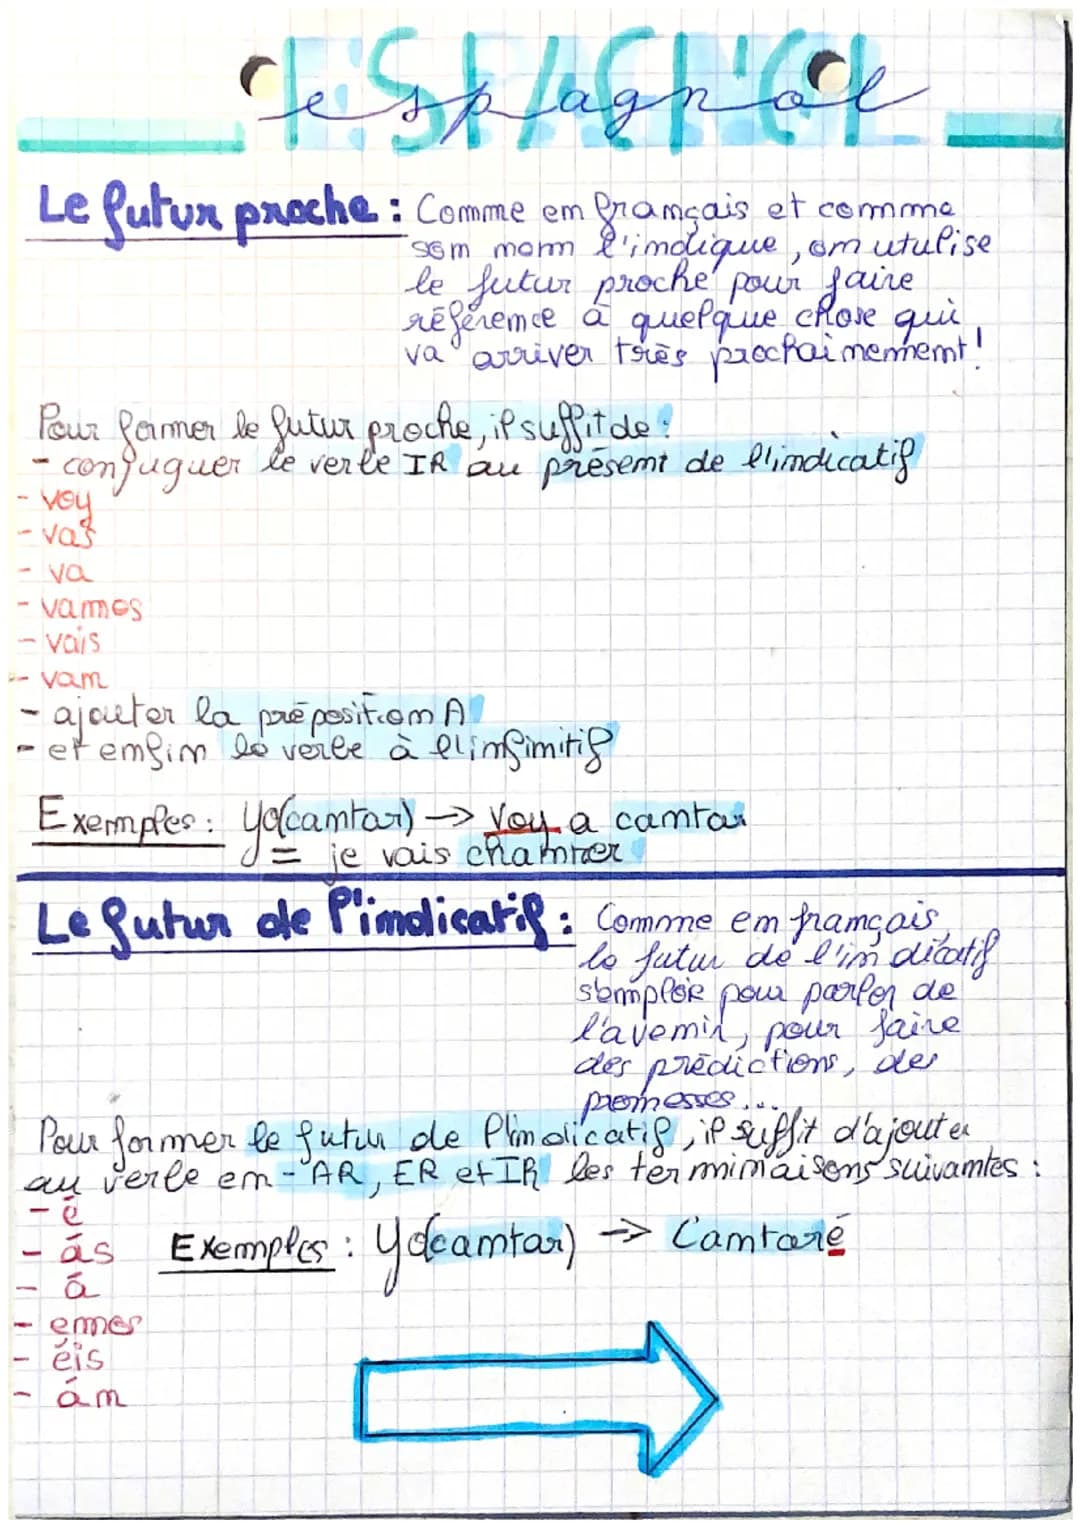 ESPAGNOL
espagnol
Le futur proche : Comme en français et comme
son nom l'indique, on utulise
le futur proche pour faire
référence à quelque chose qui
va arriver très prochainement!
Pour former le futur proche, il suffit de :
- conjuguer le verbe IR au présent de l'indicatif
- voy
- vas
- va
- vamos
- vais
- van
- ajouter la préposition A
- et enfin le verbe à l'infinitif
Exemples : Yo(cantar) -> Voy a cantar
= je vais chanter
Le futur de l'indicatif : Comme en français,
le futur de l'indicatif
s'emploie pour parler de
l'avenir, pour faire
des prédictions, des
promesses...
Pour former le futur de l'indicatif, il suffit d'ajouter
au verbe en - AR, ER et IR les terminaisons suivantes :
- é
- ás
- á
- emos
- éis
- án
Exemples : Yo(cantar) -> Cantaré